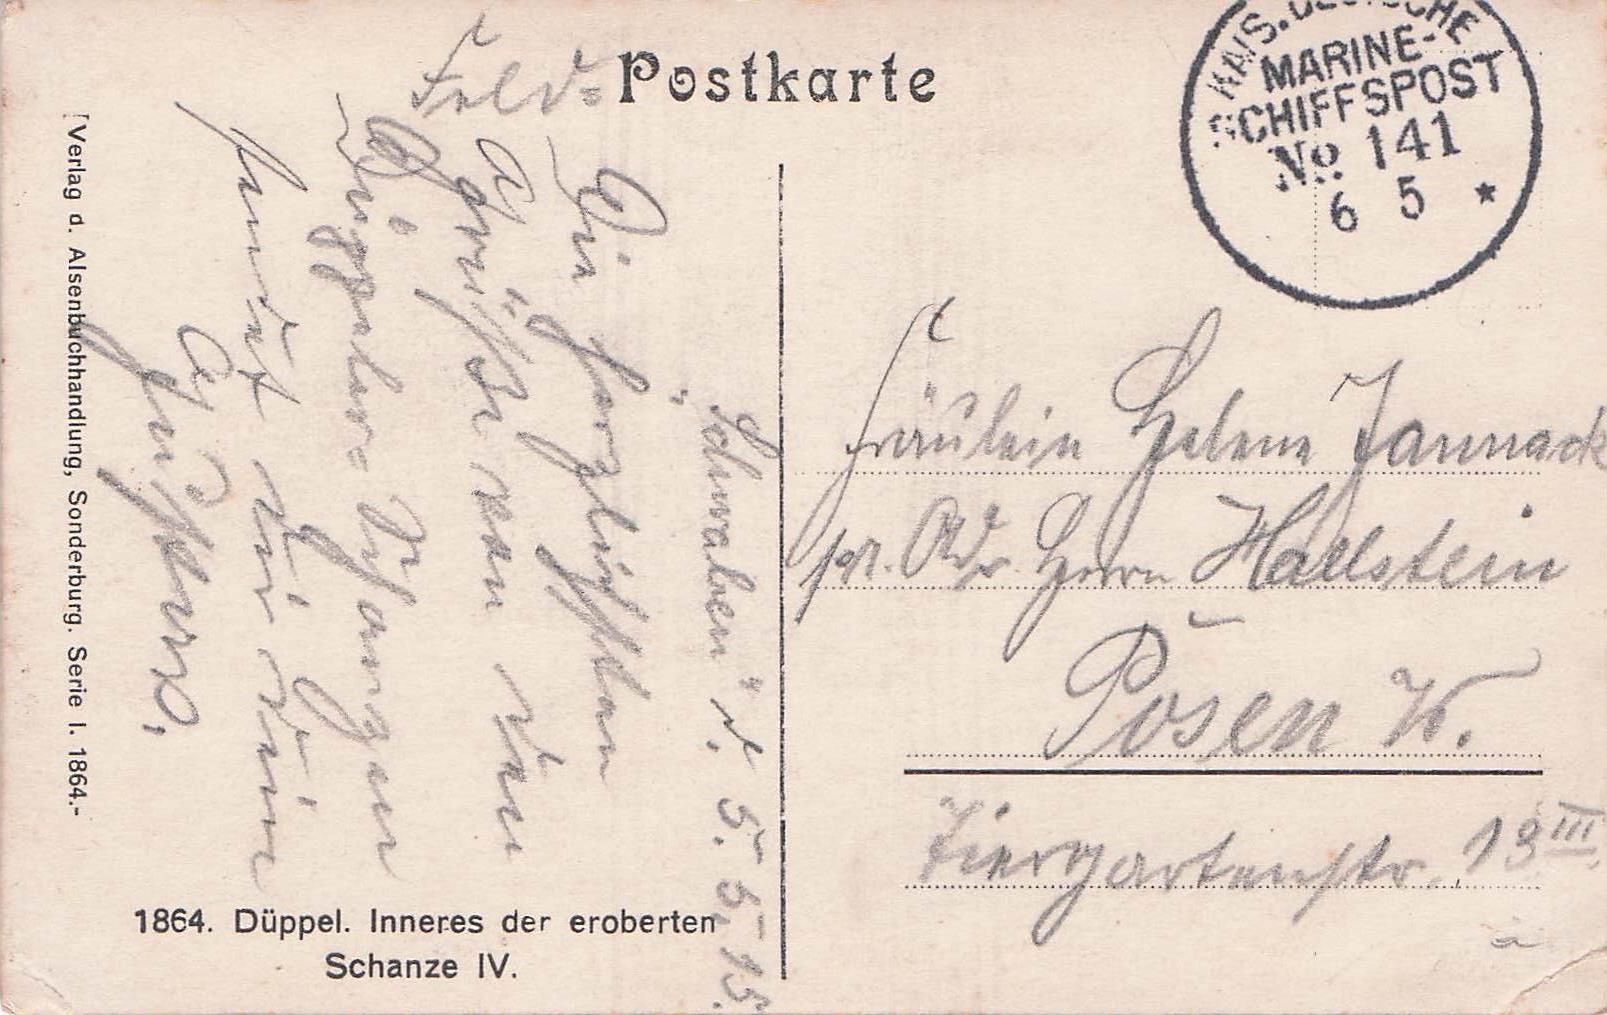 Feld= Postkarte
KAIS. DEUTSCHE
MARINE-
SCHIFFSPOST
No. 141
6 5 *
"Schwaben" d. 5. 5. 15.
Die herzlichsten
Grüße von den
Düppeler= Schanzen
sendet Dir Deine
Fräulein Helene Jannack
pr. Adr. Herrn Hallstein
Posen W.
Tiergartenstr. 13 III.
1864. Düppel. Inneres der eroberten
Schanze IV.
Verlag d. Alsenbuchhandlung, Sonderburg. Serie I. 1864.-